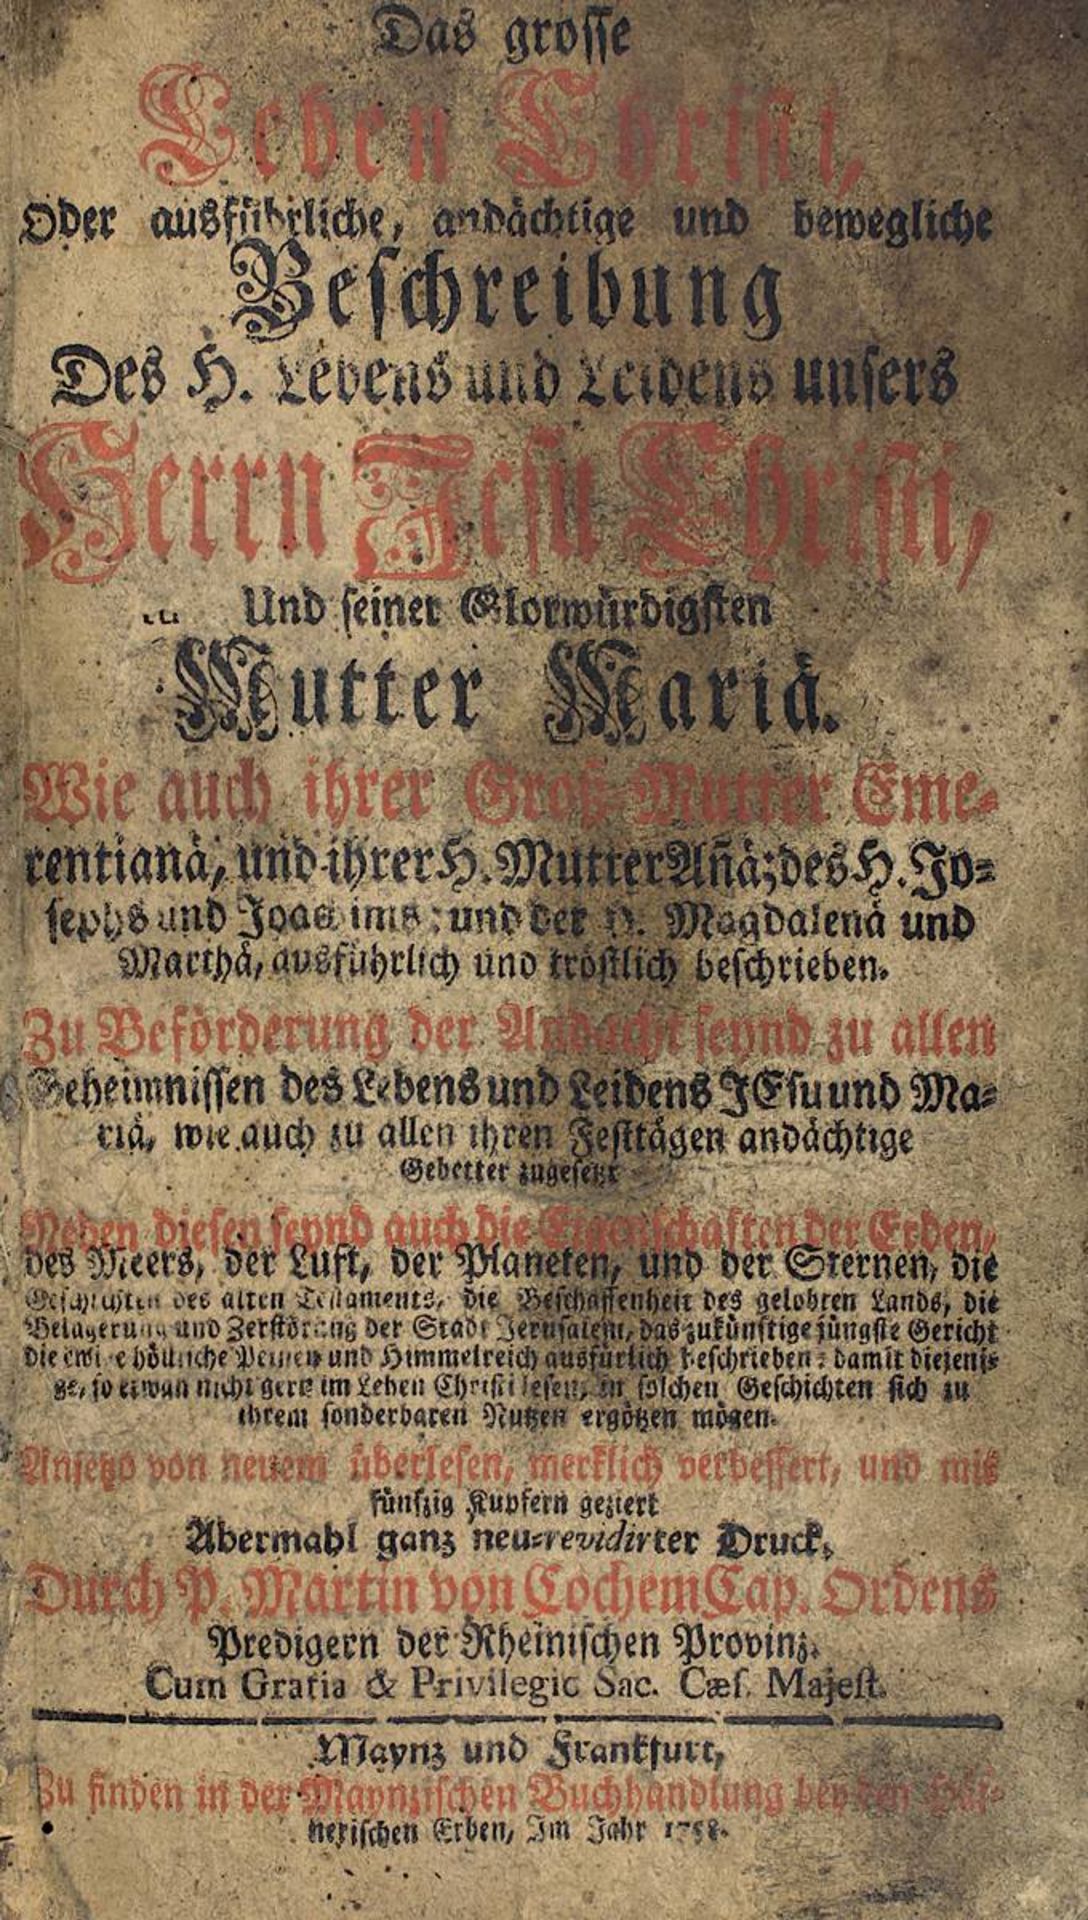 Das grosse
Leben Christi,
Oder ausführliche, andächtige und bewegliche
Beschreibung
Des H. Lebens und Leidens unsers
Herrn Jesu Christi,
Und seiner Glorwürdigsten
Mutter Mariä.
Wie auch ihrer Groß-Mutter Eme-
rentianä, und ihrer H. Mutter Añä; des H. Jo-
sephs und Joachims; und der H. Magdalenä und
Marthä, ausführlich und tröstlich beschrieben.
Zu Beförderung der Andacht seynd zu allen
Geheimnissen des Lebens und Leidens JEsu und Ma-
riä, wie auch zu allen ihren Festtägen andächtige
Gebetter zugesetzt
Neben diesen seynd auch die Eigenschaften der Erden,
des Meers, der Luft, der Planeten, und der Sternen, die
Geschichten des alten Testaments, die Beschaffenheit des gelobten Lands, die
Belagerung und Zerstörung der Stadt Jerusalem, das zukünftige jüngste Gericht
die ewige höllische Peinen und Himmelreich ausfürlich beschrieben: damit diejeni-
ge, so etwan nicht gern im Leben Christi lesen, in solchen Geschichten sich zu
ihrem sonderbaren Nutzen ergötzen mögen.
Anjetzo von neuem überlesen, merklich verbessert, und mit
fünfzig Kupfern geziert
Abermahl ganz neu-revidirter Druck,
Durch P. Martin von Cochem Cap. Ordens
Predigern der Rheinischen Provinz.
Cum Gratia & Privilegio Sac. Cæs. Majest.
Maynz und Frankfurt,
Zu finden in der Maynzischen Buchhandlung bey den Häf-
nerischen Erben, Im Jahr 1758.